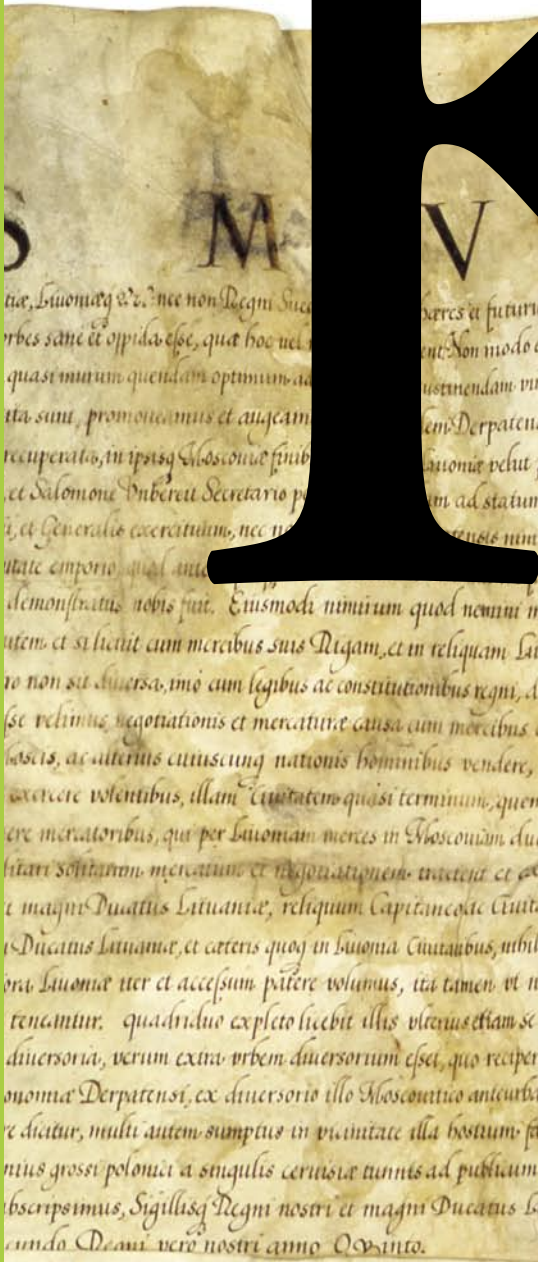 S M V
tiæ, Liuoniæq nec non Regni Suec hæres et futuru
rbes sane et oppida esse, quæ hoc uel ent. Non modo
quasi murum quendam optimum ad ustinendam
ita sunt, promoueamus et augeam Derpaten
recuperata, in ipsisq Moscouiæ finib Liuoniæ velut
et Salomone Secretario ad statum
et Generalis exercituum, nec tensis nim
itate emporio, quod ante
demonstratus nobis fuit. Eiusmodi nimirum quod nemini
utem et si licuit cum mercibus suis Rigam, et in reliquam
ro non sit diuersa, imò cum legibus ac constitutionibus regni,
sse velimus negotiationis et mercaturæ causa cum mercibus
Moscis, ac alterius cuiuscunq nationis hominibus vendere,
exercere volentibus, illam Ciuitatem quasi terminum, quem
ere mercatoribus, qui per Liuoniam merces in Moscouiam
litari solitarum mercatum et negotiationem tractent et
magni Ducatus Lituaniæ, reliquum Capitaneo ac Ciuita
Ducatus Lituaniæ, et cæteris quoq in Liuonia Ciuitatibus, nihil
ora Liuoniæ iter et accessum patere volumus, ita tamen vt
teneantur. quadriduo expleto licebit illis vlterius etiam se
diuersoria, verum extra vrbem diuersorium esset, quo reciper
onomiæ Derpatensi, ex diuersorio illo Moscouitico
re dicitur, multi autem sumptus in vicinitate illa hostium
nius grossi polonici a singulis ceruisiæ tunnis ad publicum
bscripsimus, Sigillisq Regni nostri et magni Ducatus
cundo Regni vero nostri anno Quinto.